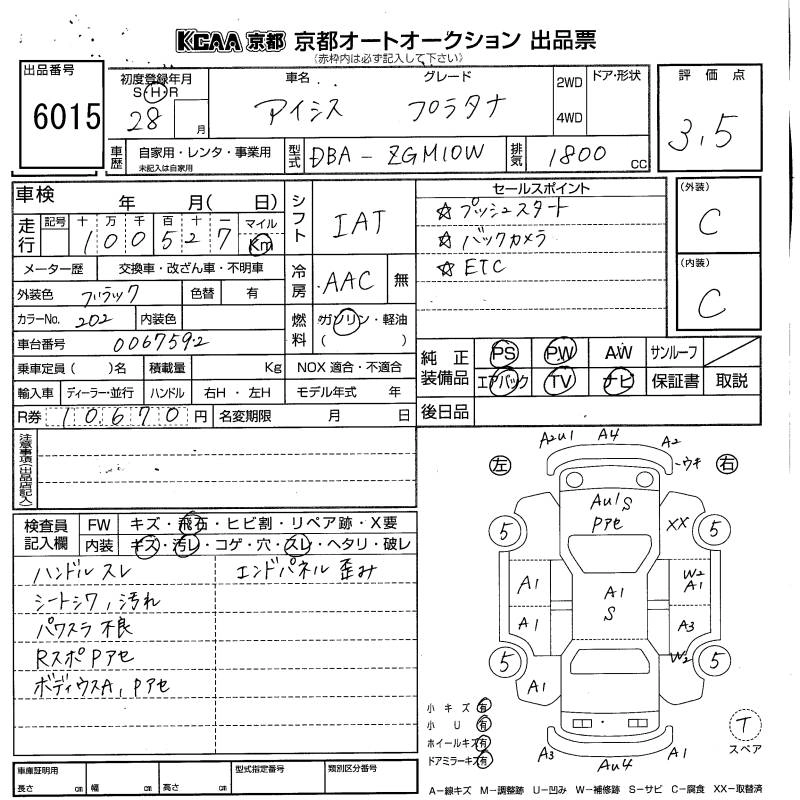 KCAA 京都 京都オートオークション 出品票
(赤枠内は必ず記入して下さい)
出品番号
6015
初度登録年月
S・H・R
28 月
車名 グレード
アイシス プラタナ
2WD
4WD
ドア・形状
評価点
3.5
車歴 自家用・レンタ・事業用
未記入は自家用
型式 DBA-ZGM10W
排気 1800 CC
車検 年 月(日)
走行 記号 十 万 千 百 十 一 マイル
1 0 0 5 2 7 Km
シフト IAT
セールスポイント
☆プッシュスタート
☆バックカメラ
☆ETC
(外装)
C
(内装)
C
メーター歴 交換車・改ざん車・不明車
冷房 AAC 無
外装色 ブラック 色替 有
カラーNo. 202 内装色
燃料 ガソリン・軽油
( )
車台番号 0067592
乗車定員( )名 積載量 Kg NOX 適合・不適合
輸入車 ディーラー・並行 ハンドル 右H・左H モデル年式 年
R券 10670 円 名変期限 月 日
純正装備品 PS PW AW サンルーフ
エアバック TV ナビ 保証書 取説
後日品
注意事項(出品店記入)
検査員記入欄 FW キズ・飛石・ヒビ割・リペア跡・X要
内装 キズ・汚レ・コゲ・穴・スレ・ヘタリ・破レ
ハンドルスレ エンドパネル歪み
シートシワ,汚れ
パワスラ不良
RスポPアセ
ボディウスA,Pアセ
左 右
A2U1 A4 A2
ウキ
AU1S
Pアセ
XX
5 5
A1 A1 W2
S A1
A1 A3
W2
5 5
A1
A3 AU4 A1
小キズ 有
小U 有
ホイールキズ 有
ドアミラーキズ 有
T
スペア
車庫証明用
長さ cm 幅 cm 高さ cm
型式指定番号 類別区分番号
A-線キズ M-調整跡 U-凹み W-補修跡 S-サビ C-腐食 XX-取替済